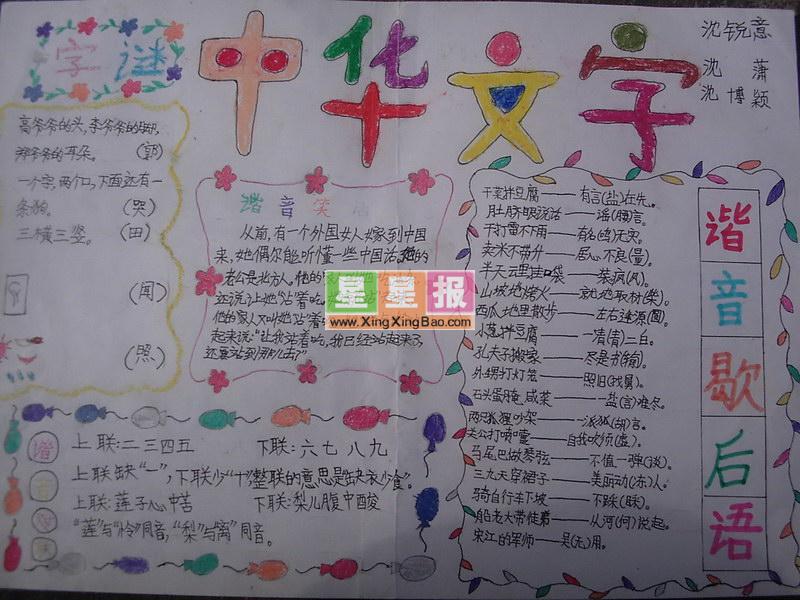 字谜
中华文字
沈锐意
沈 萧
沈博颖
高爷爷的头,李爷爷的脚,
郑爷爷的耳朵。 (郭)
一个字,两个口,下面还有一
条狗。 (哭)
三横三竖。 (田)
(闻)
(照)
谐音笑
从前,有一个外国女人嫁到中国
来,她偶尔能听懂一些中国话。她的
老公是北方人。
还说:让她站着吃。
他的家人又叫她站着
起来说:“让我站着吃,我已经站起来了
还要站到那儿去?”
星星报
www.XingXingBao.com
谐音歇后语
干菜拌豆腐——有言(盐)在先。
肚脐眼说话——谣(腰)言。
干打雷不雨——有名(鸣)无实。
卖米不带升——居心不良(量)。
半天云里挂口袋——装疯(风)。
山坡地烧火——就地取材(柴)。
西瓜地里散步——左右逢源(圆)。
小葱拌豆腐——一清(青)二白。
孔夫子搬家——尽是书(输)。
外甥打灯笼——照旧(找舅)。
石头蛋腌咸菜——一盐(言)难尽。
两只狐狸吵架——一派狐(胡)言。
关公打喷嚏——自我吹须(虚)。
马尾巴做琴弦——不值一弹(谈)。
三九天穿裙子——美丽动(冻)人。
骑自行车下坡——不踩(睬)。
船老大带徒弟——从河(何)说起。
宋江的军师——吴(无)用。
谐音
上联:二三四五 下联:六七八九
上联缺“一”,下联少“十”整联的意思是“缺衣少食”。
上联:莲子心中苦 下联:梨儿腹中酸
“莲”与“怜”同音,“梨”与“离”同音。